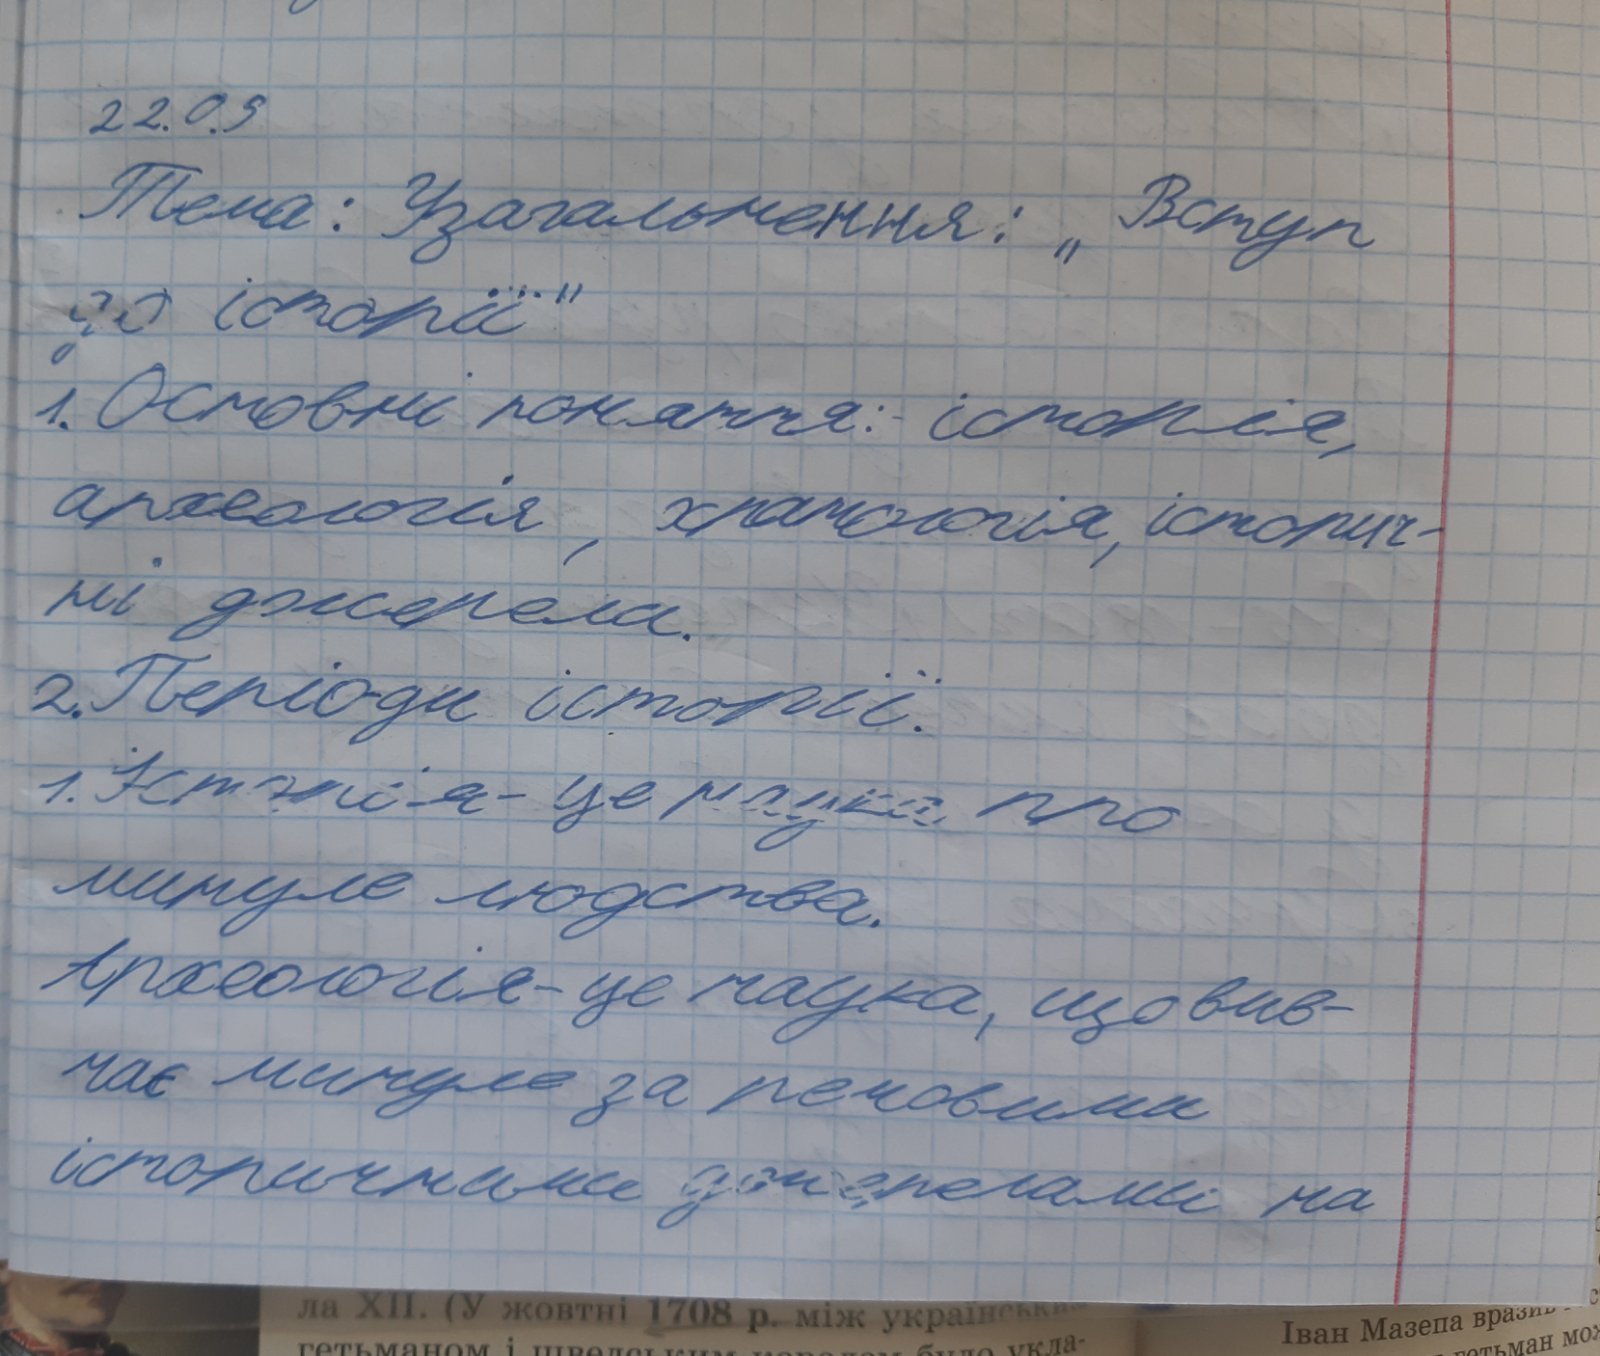 22.09
Тема: Узагальнення: „Вступ
до історії"
1. Основні поняття: - історія,
археологія, хронологія, історич-
ні джерела.
2. Періоди історії.
1. Історія - це наука про
минуле людства.
Археологія - це наука, що вив-
чає минуле за речовими
історичними джерелами на
ла XII. (У жовтні 1708 р. між українським
гетьманом і шведським королем було укла-
Іван Мазепа вразив
гетьман мож